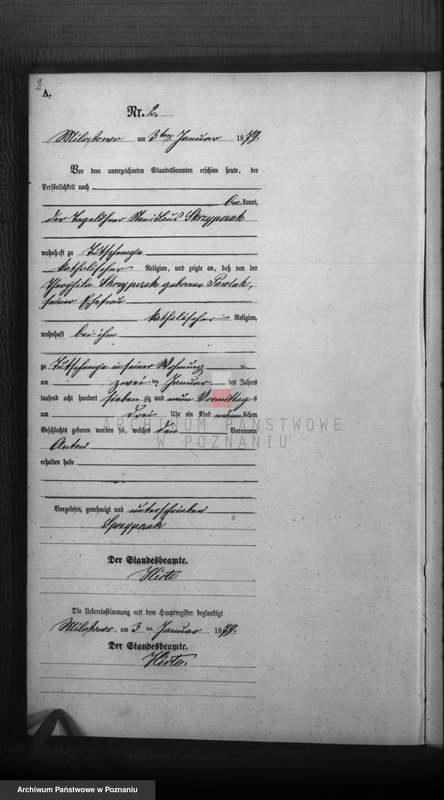 2
A.
Nr. 2.
Milostowo am 3ten Januar 1879.
Vor dem unterzeichneten Standesbeamten erschien heute, der
Persönlichkeit nach
bekannt,
der Tagelöhner Stanislaus Skrzypczak
wohnhaft zu
katholischer Religion, und zeigte an, daß von der
Theophila Skrzypczak geborene Pawlak,
seiner Ehefrau
katholischer Religion,
wohnhaft bei ihm
zu in seiner Wohnung
am zweiten Januar des Jahres
tausend acht hundert siebenzig und neun Vormittags
um drei Uhr ein Kind männlichen
Geschlechts geboren worden sei, welches den Vornamen
Anton
erhalten habe
Vorgelesen, genehmigt und unterschrieben
Skrzypczak
Der Standesbeamte.
Die Uebereinstimmung mit dem Hauptregister beglaubigt
Milostowo am 3ten Januar 1879.
Der Standesbeamte.
ARCHIWUM PAŃSTWOWE
W POZNANIU
Archiwum Państwowe w Poznaniu